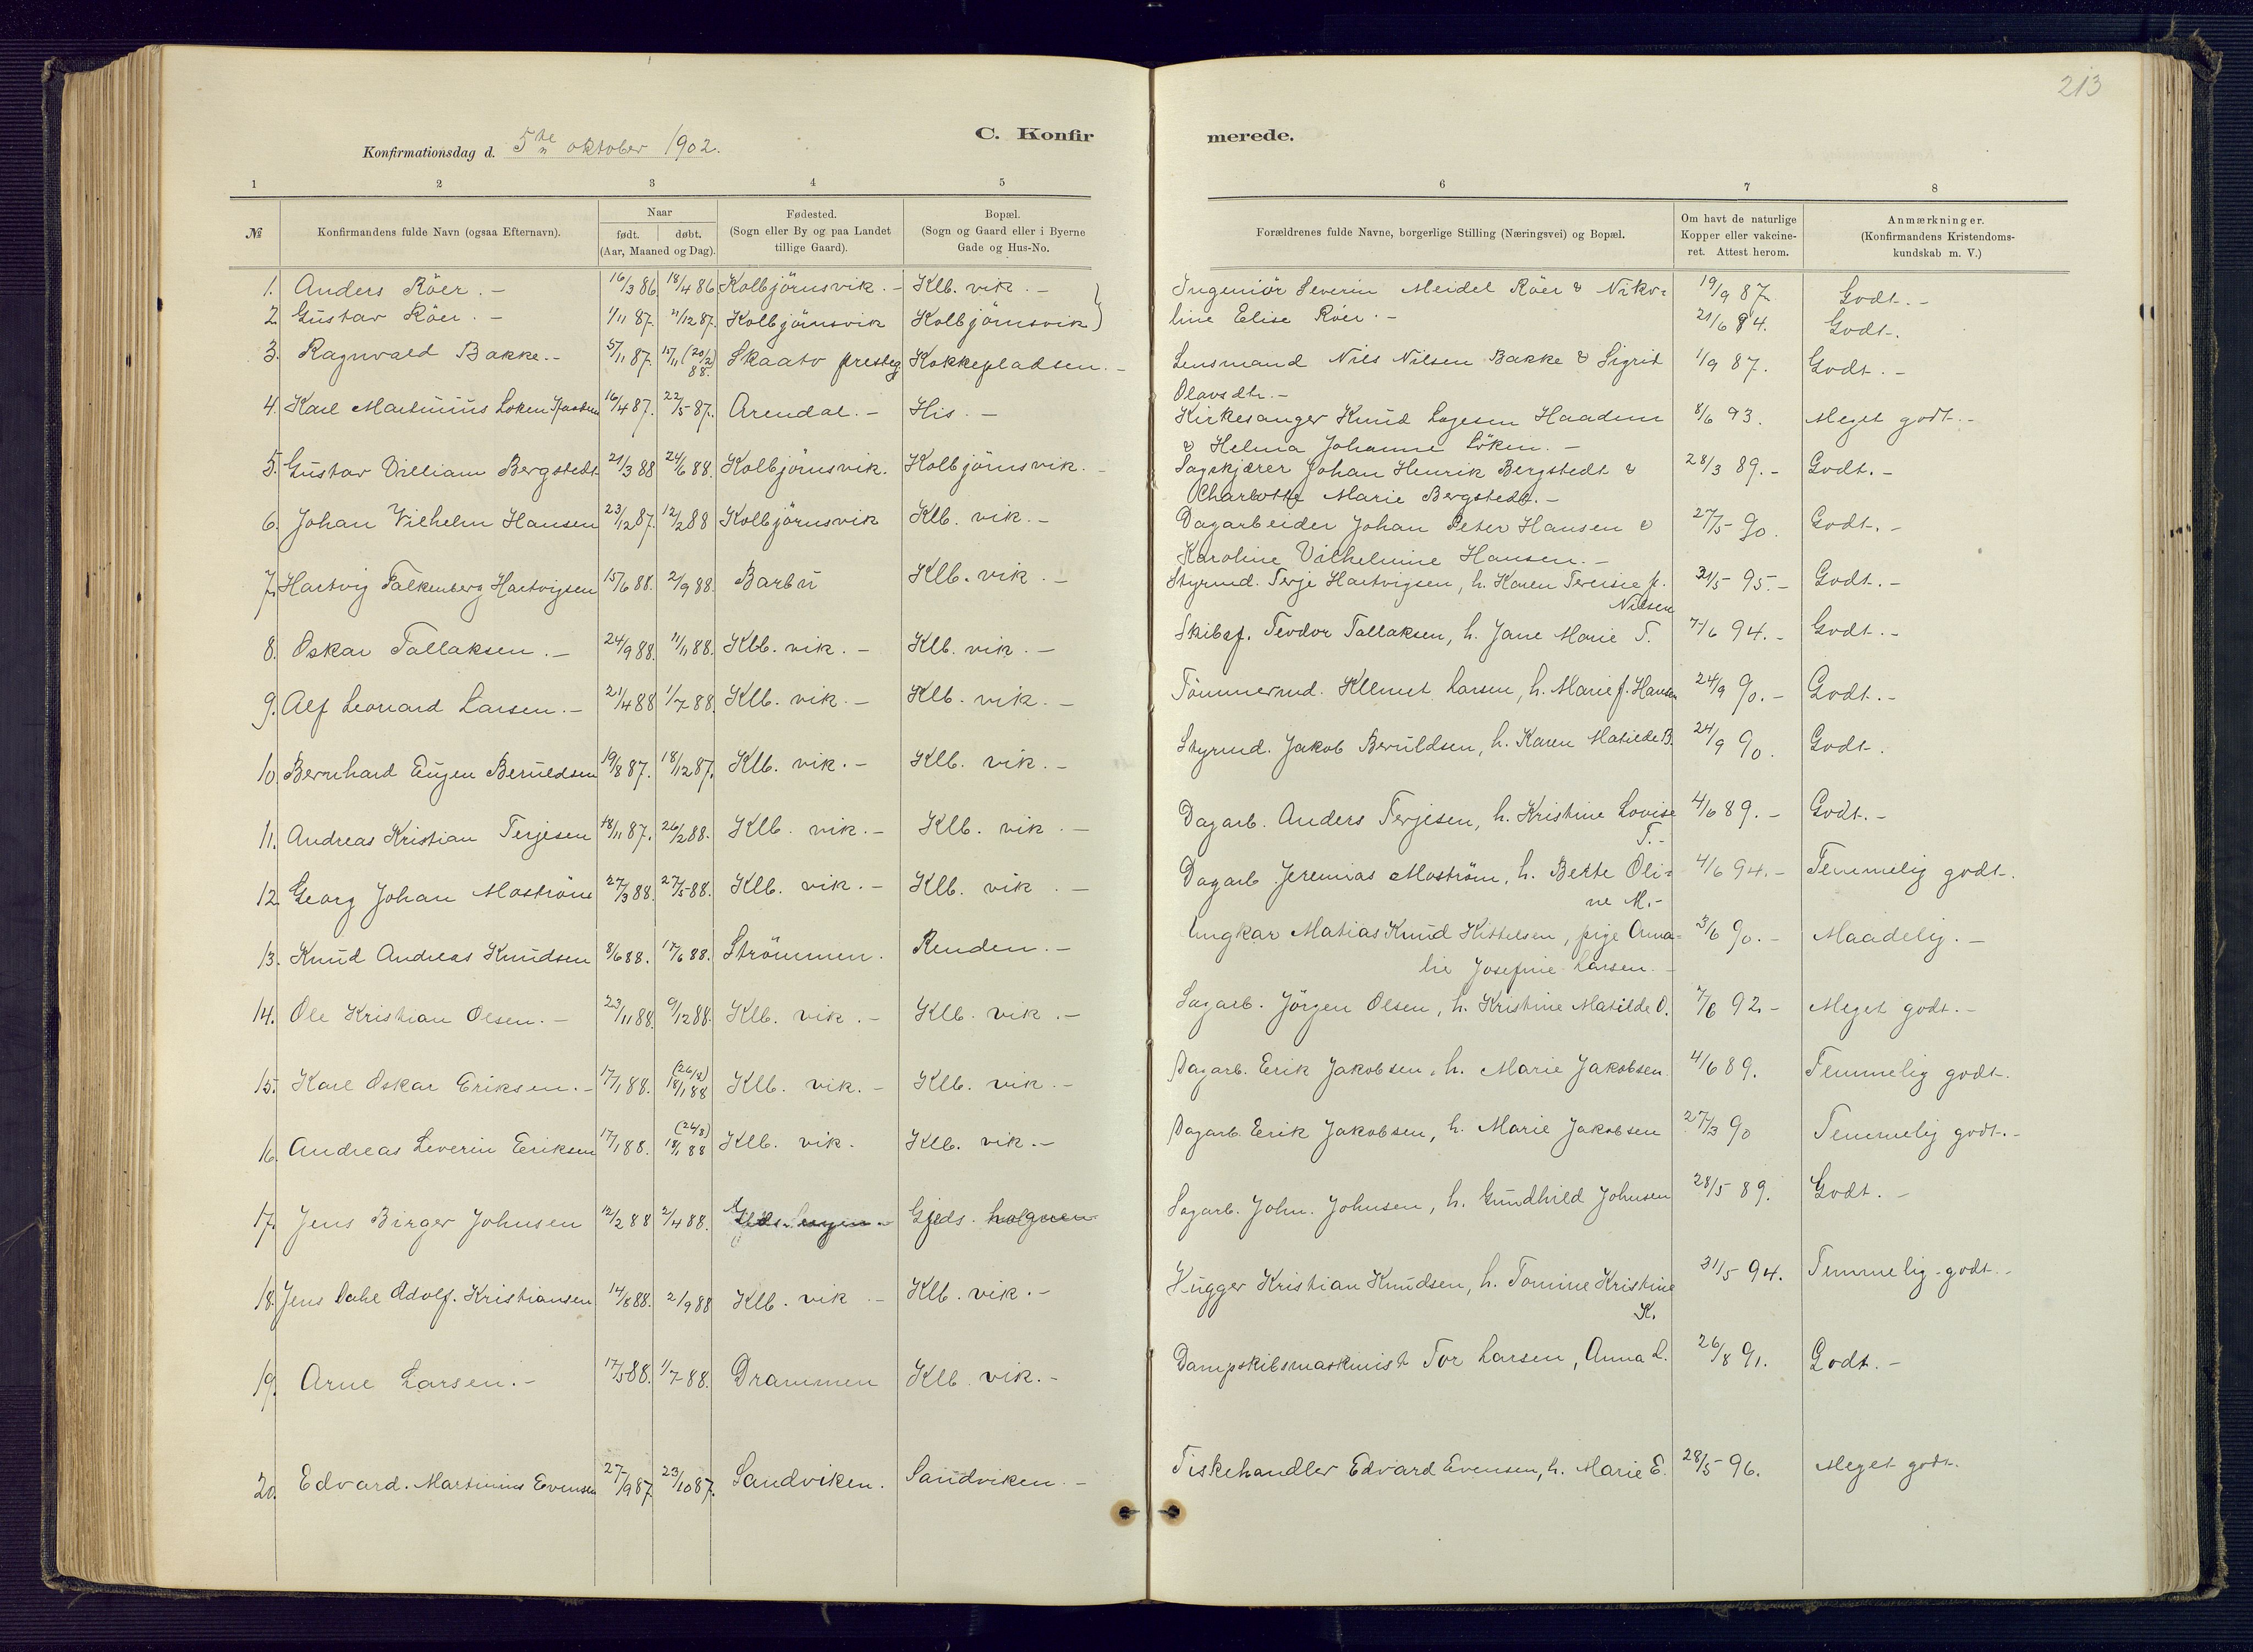 213
C. Konfirmerede.
Konfirmationsdag d. 5te oktober 1902.
1 2 3 4 5 6 7 8
№ Konfirmandens fulde Navn (ogsaa Efternavn). Naar født. døbt. (Aar, Maaned og Dag). Fødested. (Sogn eller By og paa Landet tillige Gaard). Bopæl. (Sogn og Gaard eller i Byerne Gade og Hus-No. Forældrenes fulde Navne, borgerlige Stilling (Næringsvei) og Bopæl. Om havt de naturlige Kopper eller vakcineret. Attest herom. Anmærkninger. (Konfirmandens Kristendomskundskab m. V.)
1. Anders Röer. - 16/3 86 18/4 86 Kolbjörnsvik. - Klb. vik. - Ingeniör Severin Meidel Röer & Niko= 19/9 87. Godt. -
2. Gustav Röer. - 1/11 87. 11/12 87. Kolbjörnsvik Kolbjörnsvik line Elise Röer. - 21/6 94. Godt.
3. Ragnvald Bakke. - 5/11 87. 15/11 (20/2) 88. Skaatö presteg. Kokkepladsen. - Lensmand Nils Nilsen Bakke & Sigrid 1/9 87. Godt. -
Olavsdtr. -
4. Karl Martinius Löken Haadem 16/4 87. 22/5 87. Arendal. - His. - Kirkesanger Knud Lagesen Haadem 8/6 93. Meget godt. -
& Helma Johanne Löken. -
5. Gustav Villiam Bergstedt 21/3 88 24/6 88. Kolbjörnsvik. Kolbjörnsvik. - Sagskjærer Johan Henrik Bergstedt & 28/3 89. - Godt. -
Charlotte Marie Bergstedt. -
6. Johan Vilhelm Hansen 23/12 87. 12/2 88 Kolbjörnsvik Klb. vik. - Dagarbeider Johan Peter Hansen & 27/5 90. Godt. -
Karoline Vilhelmine Hansen. -
7. Hartvig Falkenberg Hartvigsen 15/6 88. 2/9 88. Barbu Klb. vik. - Styrmd. Terje Hartvigsen, h. Karen Teresie f. 31/5 95. - Godt. -
Nilsen
8. Oskar Tallaksen. - 24/9 88. 11/11 88. Klb. vik. - Klb. vik. - Skibsf. Teodor Tallaksen, h. Jane Marie T. 7/6 94. - Godt. -
9. Alf Leonard Larsen. - 21/4 88 1/7 88. Klb. vik. - Klb. vik. - Tömmermd. Klemet Larsen, h. Marie f. Hansen 24/9 90. - Godt. -
10. Bernhard Eugen Beruldsen 19/8 87. 18/12 87. Klb. vik. - Klb. vik. - Styrmd. Jakob Beruldsen, h. Karen Matilde B. 24/9 90. Godt.
11. Andreas Kristian Terjesen 18/11 87. 26/2 88. Klb. vik. - Klb. vik. - Dagarb. Anders Terjesen, h. Kristine Lovise 4/6 89. - Godt. -
T. -
12. Georg Johan Moström 27/3 88. 27/5 88. Klb. vik. - Klb. vik. - Dagarb. Jeremias Moström, h. Berte Oli= 4/6 94. - Temmelig godt.
ne M. -
13. Knud Andreas Knudsen 8/6 88. 17/6 88. Strömmen. Renden. - Ungkar Matias Knud Kittelsen, pige Ama= 3/6 90. - Maadelig. -
lie Josefine Larsen. -
14. Ole Kristian Olsen. - 23/11 88. 9/12 88. Klb. vik. - Klb. vik. - Sagarb. Jörgen Olsen, h. Kristine Matilde O. 7/6 92 - Meget godt. -
15. Karl Oskar Eriksen. - 17/1 88. 18/1 88 Klb. vik. - Klb. vik. - Dagarb. Erik Jakobsen, h. Marie Jakobsen. 4/6 89. Temmelig godt.
16. Andreas Severin Eriksen 17/1 88. (26/3) 18/1 88 Klb. vik. Klb. vik. - Dagarb. Erik Jakobsen, h. Marie Jakobsen 27/3 90 Temmelig godt. -
17. Jens Birger Johnsen 12/2 88 2/4 88. Gjeds. Sagarb. John. Johnsen, h. Gundhild Johnsen 28/5 89. Godt. -
18. Jens Dahl Adolf. Kristiansen 14/8 88. 2/9 88 Klb. vik - Klb. vik. - Hugger Kristian Knudsen, h. Tomine Kristine 31/5 94. Temmelig godt. -
K.
19. Arne Larsen. - 17/5 88. 1/7 88. Drammen Klb. vik. - Dampskibsmaskinist Tor Larsen, Anna L. 26/8 91. Godt. -
20. Edvard. Martinius Evensen 27/9 87. 23/10 87. Sandviken. Sandviken. - Fiskehandler Edvard Evensen, h. Marie E. 28/5 96. Meget godt.